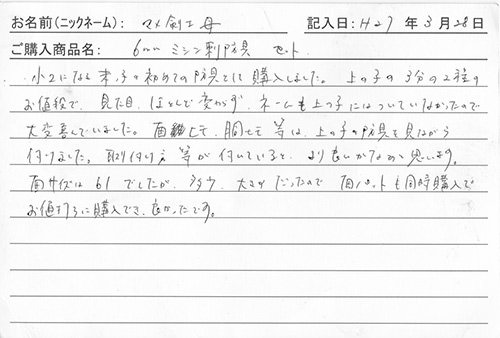 お名前(ニックネーム): マメ剣士 母 記入日: H27 年 3 月 28 日
ご購入商品名: 6mm ミシン刺防具 セット
小2になる末っ子の初めての防具として購入しました。上の子の3分の2程の
お値段で、見た目、ほとんど変わらず、ネームも上の子にはついていなかったので
大変喜んでいました。面紐も、胴も 等は、上の子の防具を見ながら
付けました。取り付け方 等が付いていると、より良いかなぁと思います。
面サイズは61でしたが、少々、大きめだったので 面パットも同時購入で
お値打ちに購入でき、良かったです。